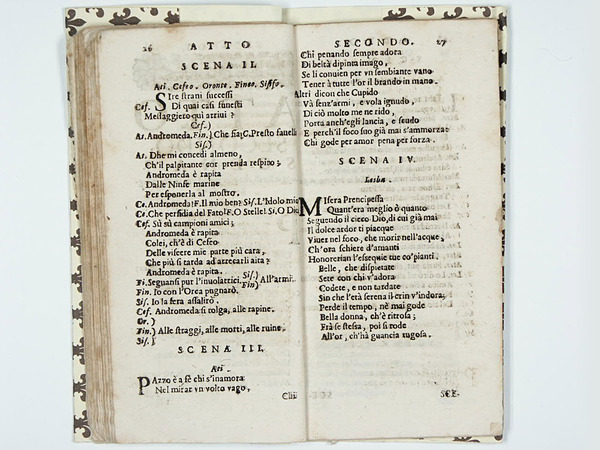 26 ATTO
SCENA II.
Ati. Cefeo. Oronte. Fineo. Sisifo.
SIre strani successi
Cef. Di quai casi funesti
Messaggiero quì arriui?
Cef.)
At. Andromeda. Fin.) Che sia? C. Presto fauella
Sis.)
At. Dhe mi concedi almeno,
Ch'il palpitante cor prenda respiro;
Andromeda è rapita
Dalle Ninfe marine
Per esponerla al mostro.
Ce. Andromeda? F. Il mio ben? Sis. L'Idolo mio
Ce. Che perfidia del Fato! F. O Stelle! Si. O Dio
Cef. Sù sù campioni amici;
Andromeda è rapita
Colei, ch'è di Cefeo
Delle viscere mie parte più cara,
Che più si tarda ad arrecarli aita?
Andromeda è rapita.
Fi. Seguansi pur l'inuolatrici Sis.) Fin) All'armi.
Fin. Io con l'Orca pugnarò.
Sis. Io la fera assalirò.
Cef. Andromeda si tolga, alle rapine.
Or.)
Fin.) Alle straggi, alle morti, alle ruine.
Sis.)
SCENA III.
Ati
PAzzo è a fè chi s'inamora
Nel mirar vn volto vago,
SECONDO. 27
Chi penando sempre adora
Di beltà dipinta imago,
Se li conuien per vn sembiante vano
Tener à tutte l'or il brando in mano.
Altri dicon che Cupido
Và senz'armi, e vola ignudo,
Di ciò molto me ne rido,
Porta anch'egli lancia, e scudo
E perch'il foco suo già mai s'ammorza
Chi gode per amor pena per forza.
SCENA IV.
Lesba.
MIsera Prencipessa
Quant'era meglio ò quanto
Seguendo il cieco Dio, di cui già mai
Il dolce ardor ti piacque
Viuer nel foco, che morir nell'acque,
Ch'ora schiere d'amanti
Honorerian l'essequie tue co' pianti.
Belle, che dispietate
Sete con chi v'adora
Godete, e non tardate
Sin che l'età serena il crin v'indora;
Perde il tempo, nè mai gode
Bella donna, ch'è ritrosa;
Frà se stessa, poi si rode
All'or, ch'hà guancia rugosa.
SCE-